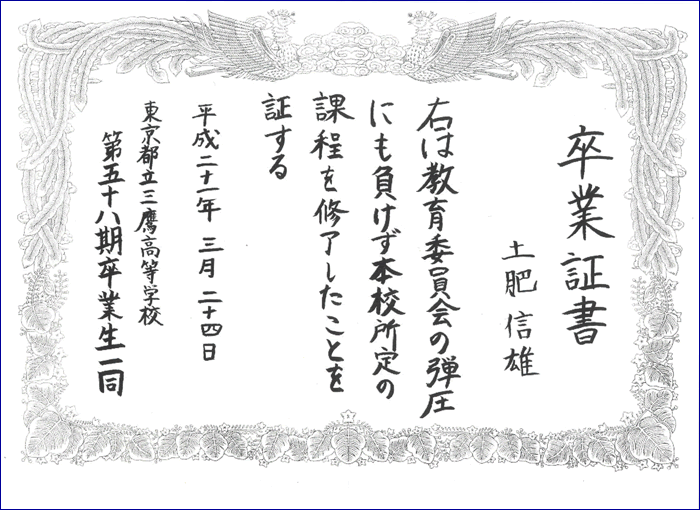 卒業証書
土肥信雄
右は教育委員会の弾圧
にも負けず本校所定の
課程を修了したことを
証する
平成二十一年 三月 二十四日
東京都立三鷹高等学校
第五十八期卒業生一同